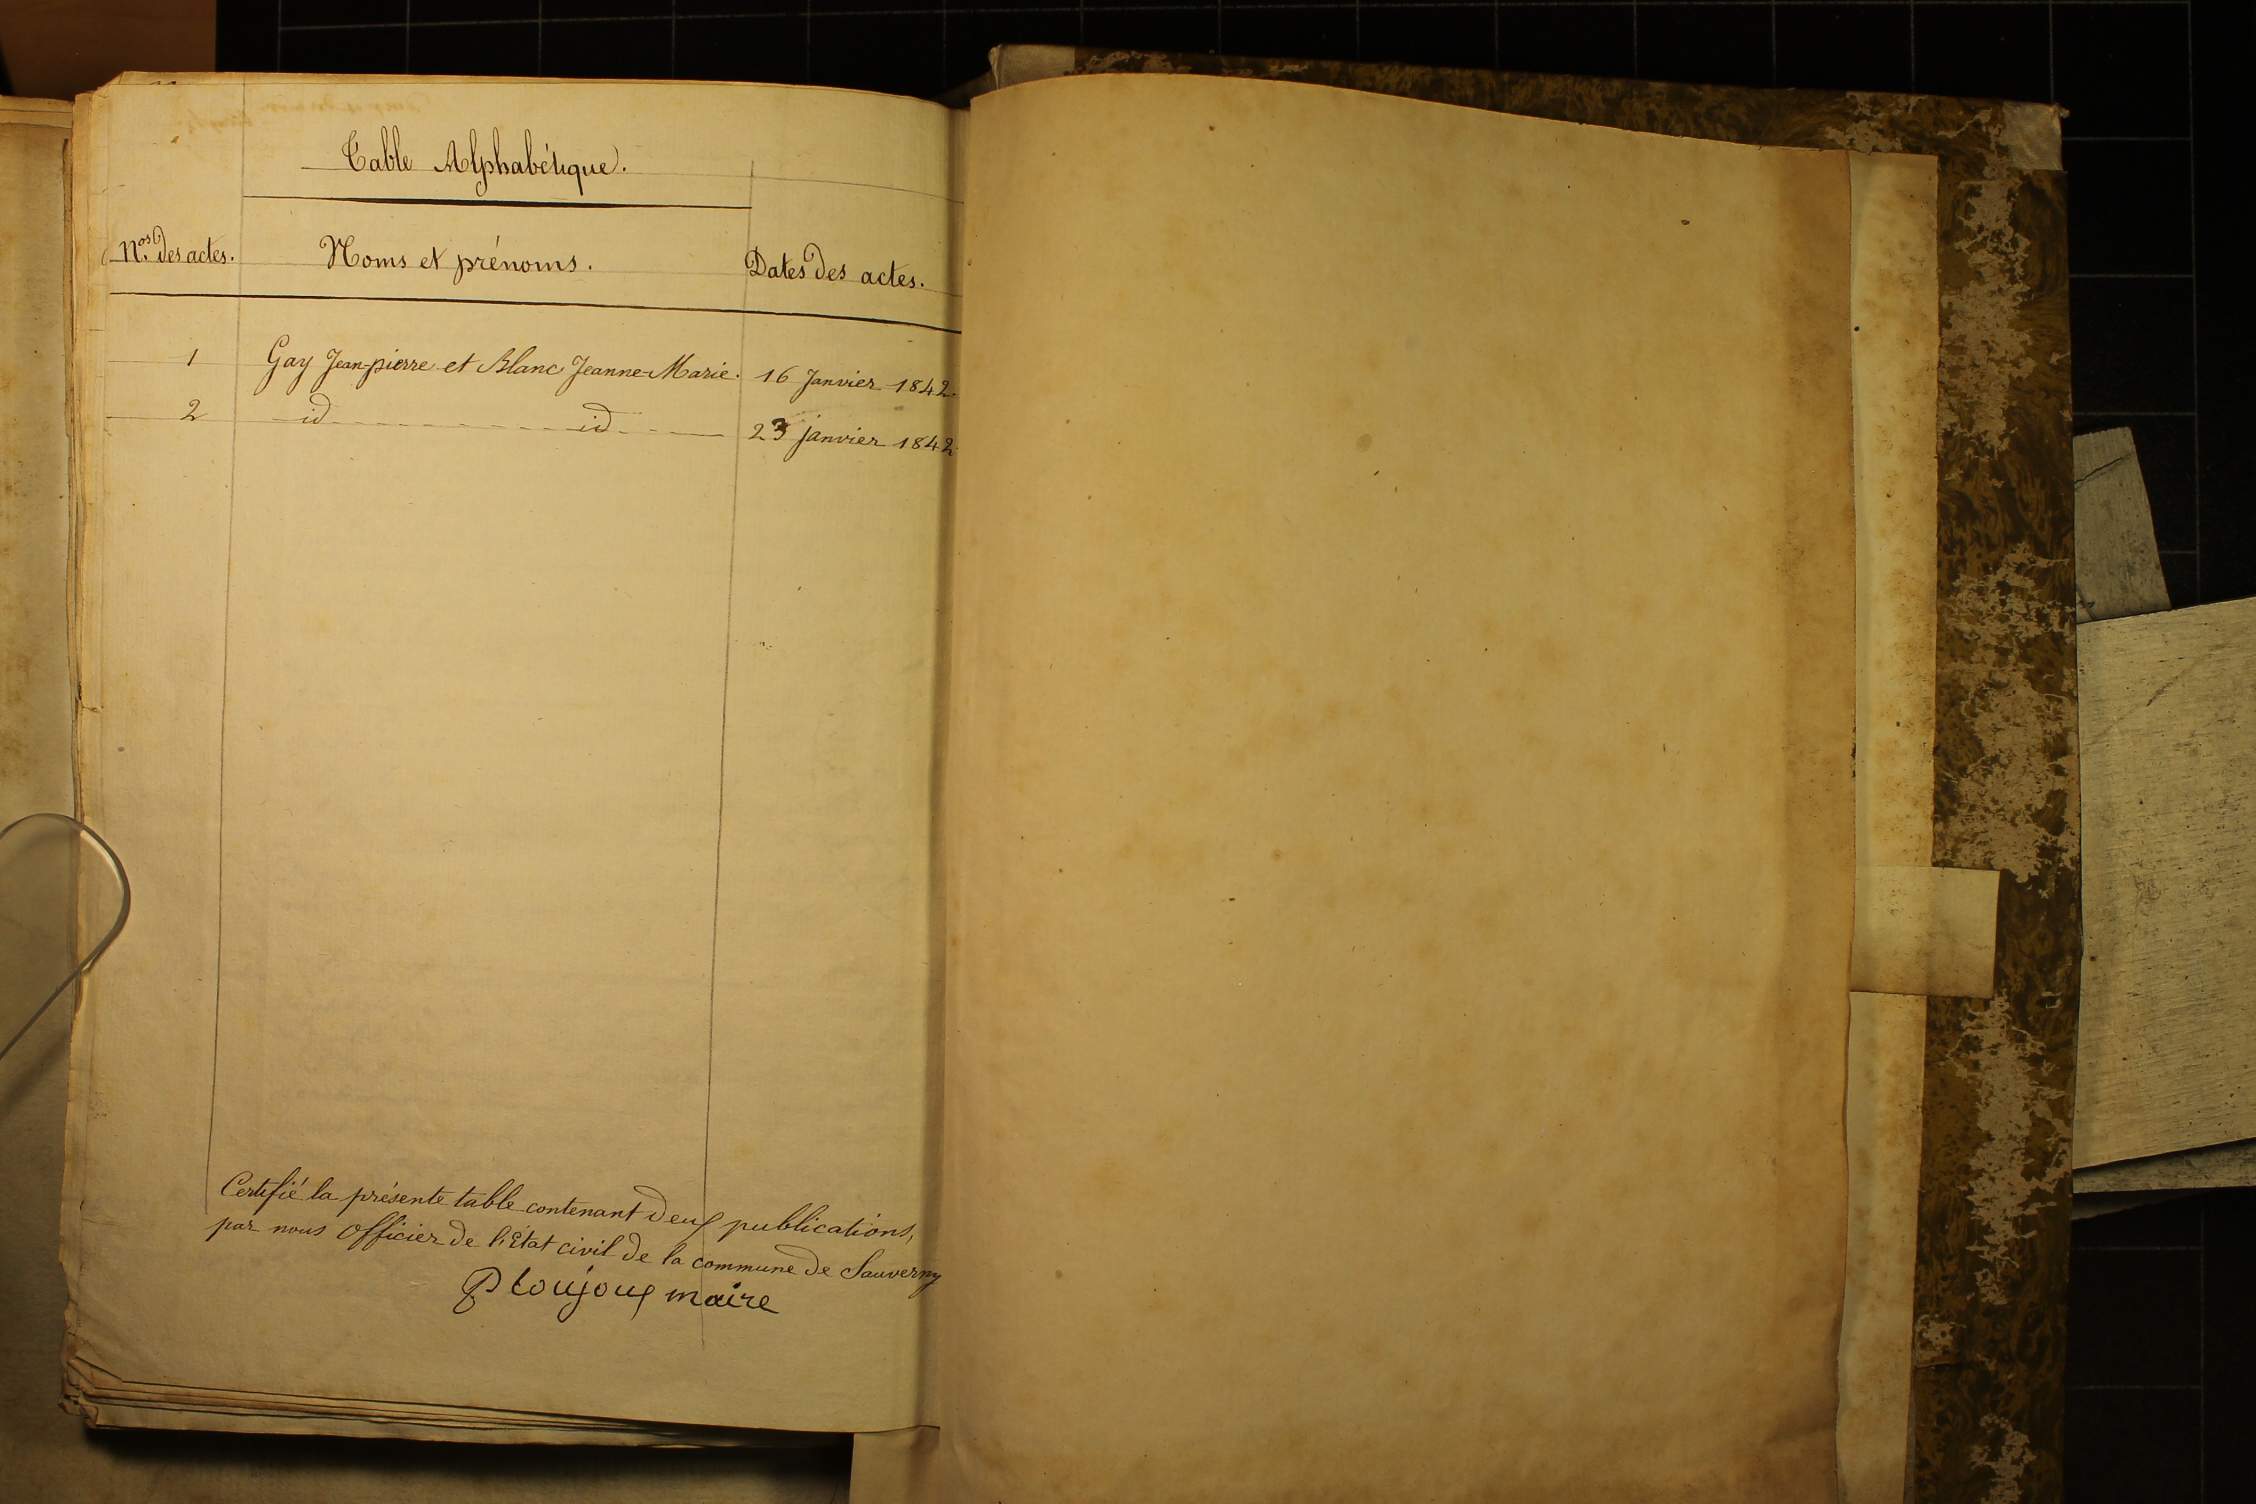 Table Alphabétique.
Nos. des actes. Noms et prénoms. Dates des actes.
1 Gay Jean-pierre et Blanc Jeanne-Marie. 16 Janvier 1842.
2 id id 23 janvier 1842
Certifié la présente table contenant deux publications,
par nous officier de l'Etat civil de la commune de Sauverny
P toujoux maire